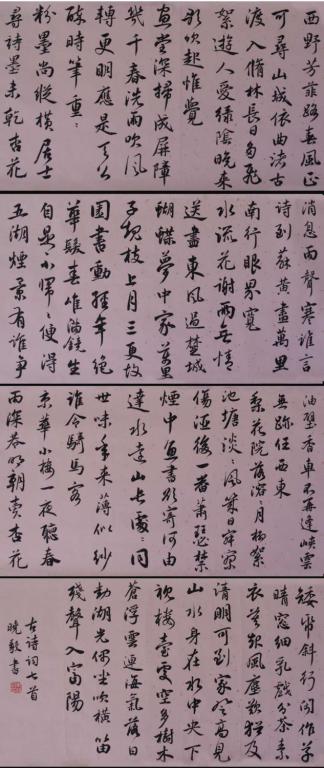 西野芳菲路春風正
可尋山城依曲渚古
渡入脩林長日多飛
絮遊人愛綠陰晚來
歌吹起惟覺
畫堂深掃成屏障
幾千春洗雨吹風
轉更明應是天公
醉時筆重重
粉墨尚縱橫居士
尋詩墨未乾杏花
消息雨聲寒誰言
詩到蘇黃盡萬里
南行眼界寬
水流花謝兩無情
送盡東風過楚城
蝴蝶夢中家萬里
子規枝上月三更故
園書動經年絕
華髮春唯滿鏡生
自是不歸歸便得
五湖煙景有誰爭
油壁香車不再逢峽雲
無跡任西東
梨花院落溶溶月柳絮
池塘淡淡風幾日寂寥
傷酒後一番蕭瑟禁
煙中魚書欲寄何由
達水遠山長處處同
世味年來薄似紗
誰令騎馬客
京華小樓一夜聽春
雨深巷明朝賣杏花
矮紙斜行閒作草
晴窗細乳戲分茶素
衣莫歎風塵歎猶及
清明可到家登高見
山水身在水中央下
視樓臺處空多樹木
蒼浮雲連海氣落日
動湖光偶坐吹橫笛
殘聲入富陽
古詩詞七首
曉毅書